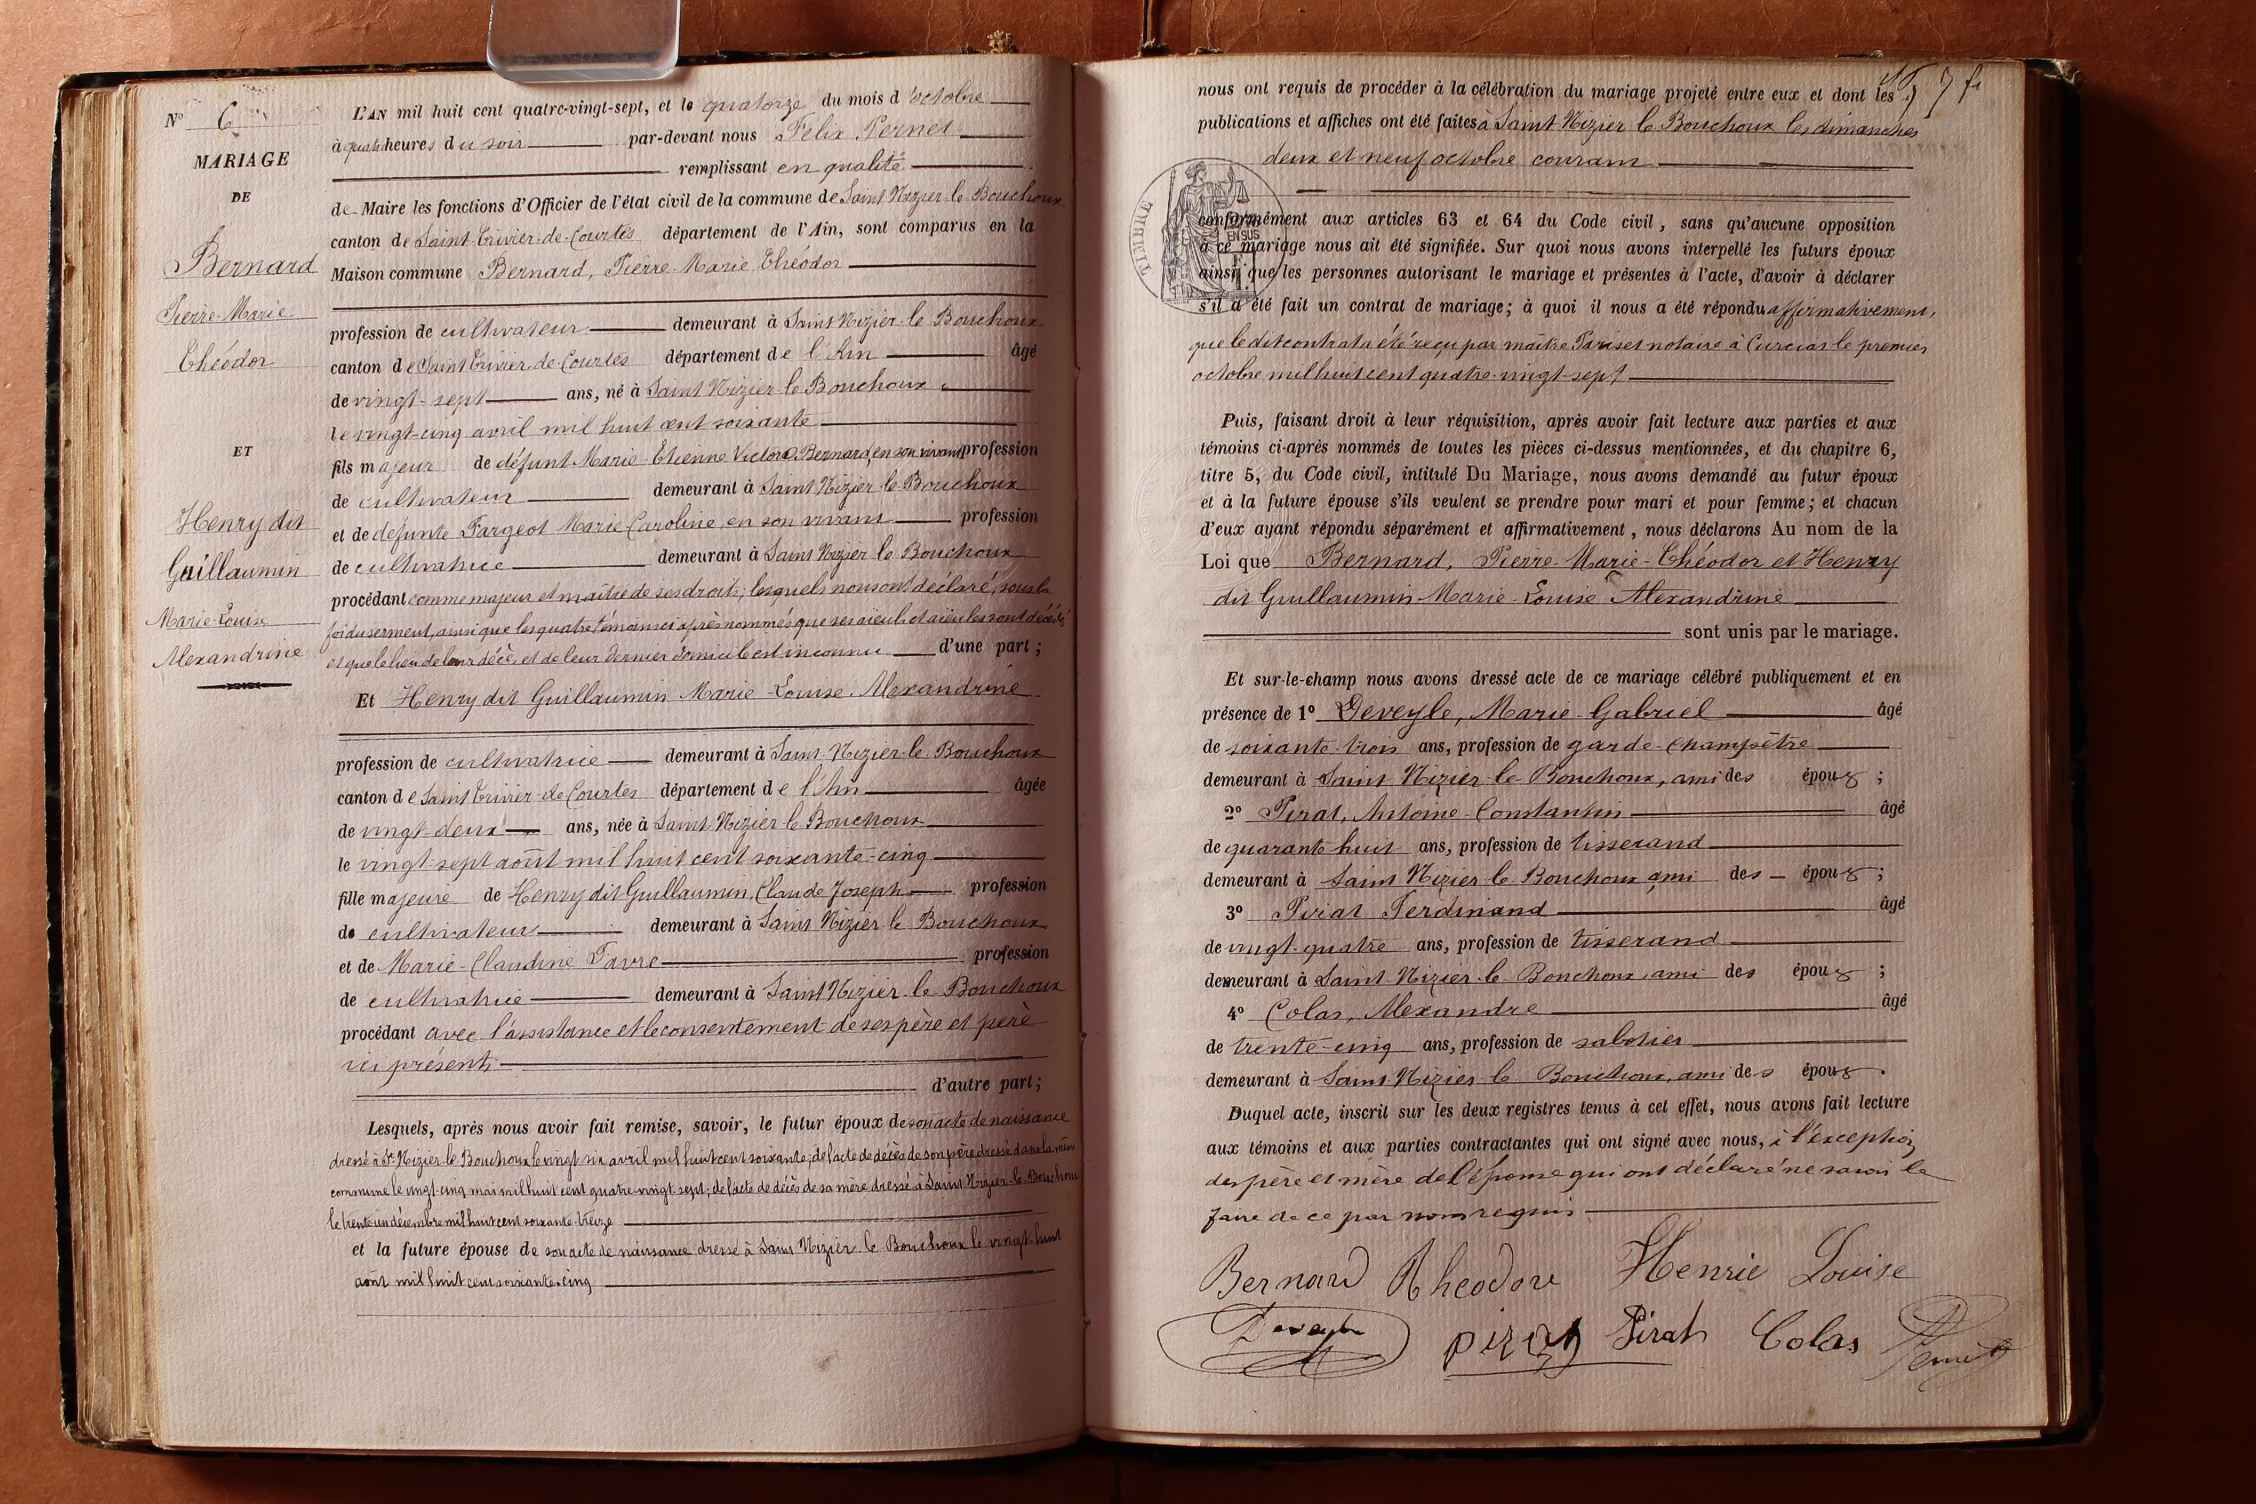 N° 6
MARIAGE
DE
Bernard
Pierre-Marie
Théodor
ET
Henry dit
Guillaumin
Marie-Louise
Alexandrine
L'AN mil huit cent quatre-vingt-sept, et le quatorze du mois d'octobre
à quatre heures du soir par-devant nous Felix Pernet
remplissant en qualité
de Maire les fonctions d'Officier de l'état civil de la commune de Saint Nizier-le-Bouchoux
canton de Saint-Trivier-de-Courtes département de l'Ain, sont comparus en la
Maison commune Bernard, Pierre-Marie Théodor
profession de cultivateur demeurant à Saint Nizier-le Bouchoux
canton de Saint Trivier-de-Courtes département de l'Ain âgé
de vingt-sept ans, né à Saint Nizier-le-Bouchoux
le vingt-cinq avril mil huit cent soixante
fils majeur de défunt Marie Etienne Victore Bernard, en son vivant profession
de cultivateur demeurant à Saint Nizier-le-Bouchoux
et de defunte Fargeot Marie Caroline, en son vivant profession
de cultivatrice demeurant à Saint Nizier le Bouchoux
procédant comme majeur et maître de ses droits; lesquels nous ont déclaré, sous la
foi du serment, ainsi que les quatre témoins ci après nommés que ses aïeuls et aïeules sont décédés
et que le lieu de leur décès et de leur dernier domicile est inconnu d'une part;
Et Henry dit Guillaumin Marie-Louise-Alexandrine
profession de cultivatrice demeurant à Saint-Nizier-le Bouchoux
canton de Saint Trivier-de Courtes département de l'Ain âgée
de vingt-deux ans, née à Saint-Nizier-le-Bouchoux
le vingt-sept août mil huit cent soixante-cinq
fille majeure de Henry dit Guillaumin, Claude Joseph profession
de cultivateur demeurant à Saint Nizier-le Bouchoux
et de Marie-Claudine Favre profession
de cultivatrice demeurant à Saint Nizier-le Bouchoux
procédant avec l'assistance et le consentement de ses père et père
ici présents
d'autre part;
Lesquels, après nous avoir fait remise, savoir, le futur époux de son acte de naissance
dressé à St. Nizier-le Bouchoux le vingt six avril mil huit cent soixante; de l'acte de décès de son père dressé dans la même
commune le vingt-cinq mai mil huit cent quatre-vingt sept; de l'acte de décès de sa mère dressé à Saint-Nizier-le-Bouchoux
le trente un décembre mil huit cent soixante-treize
et la future épouse de son acte de naissance dressé à Saint Nizier le Bouchoux le vingt-huit
août mil huit cent soixante-cinq
7 f
nous ont requis de procéder à la célébration du mariage projeté entre eux et dont les
publications et affiches ont été faites à Saint Nizier le Bouchoux les dimanches
deux et neuf octobre courant
TIMBRE
EN SUS
conformément aux articles 63 et 64 du Code civil, sans qu'aucune opposition
à ce mariage nous ait été signifiée. Sur quoi nous avons interpellé les futurs époux
ainsi que les personnes autorisant le mariage et présentes à l'acte, d'avoir à déclarer
s'il a été fait un contrat de mariage; à quoi il nous a été répondu affirmativement,
que le dit contrat a été reçu par maître Pariset notaire à Curcias le premier
octobre mil huit cent quatre-vingt-sept
Puis, faisant droit à leur réquisition, après avoir fait lecture aux parties et aux
témoins ci-après nommés de toutes les pièces ci-dessus mentionnées, et du chapitre 6,
titre 5, du Code civil, intitulé Du Mariage, nous avons demandé au futur époux
et à la future épouse s'ils veulent se prendre pour mari et pour femme; et chacun
d'eux ayant répondu séparément et affirmativement, nous déclarons Au nom de la
Loi que Bernard, Pierre-Marie-Théodor et Henry
dit Guillaumin Marie-Louise Alexandrine
sont unis par le mariage.
Et sur-le-champ nous avons dressé acte de ce mariage célébré publiquement et en
présence de 1° Deveyle, Marie-Gabriel âgé
de soixante-trois ans, profession de garde-champêtre
demeurant à Saint Nizier-le-Bouchoux, ami des époux;
2° Pirat, Antoine-Constantin âgé
de quarante huit ans, profession de tisserand
demeurant à Saint Nizier le Bouchoux ami des époux;
3° Pirat Ferdinand âgé
de vingt-quatre ans, profession de tisserand
demeurant à Saint Nizier-le Bouchoux, ami des époux;
4° Colas, Alexandre âgé
de trente-cinq ans, profession de sabotier
demeurant à Saint Nizier le Bouchoux, ami des époux.
Duquel acte, inscrit sur les deux registres tenus à cet effet, nous avons fait lecture
aux témoins et aux parties contractantes qui ont signé avec nous, à l'exception
des père et mère de l'épouse qui ont déclaré ne savoir le
faire de ce par nous requis
Bernard Theodore Henrie Louise
Deveyle Pirat Pirat Colas Pernet